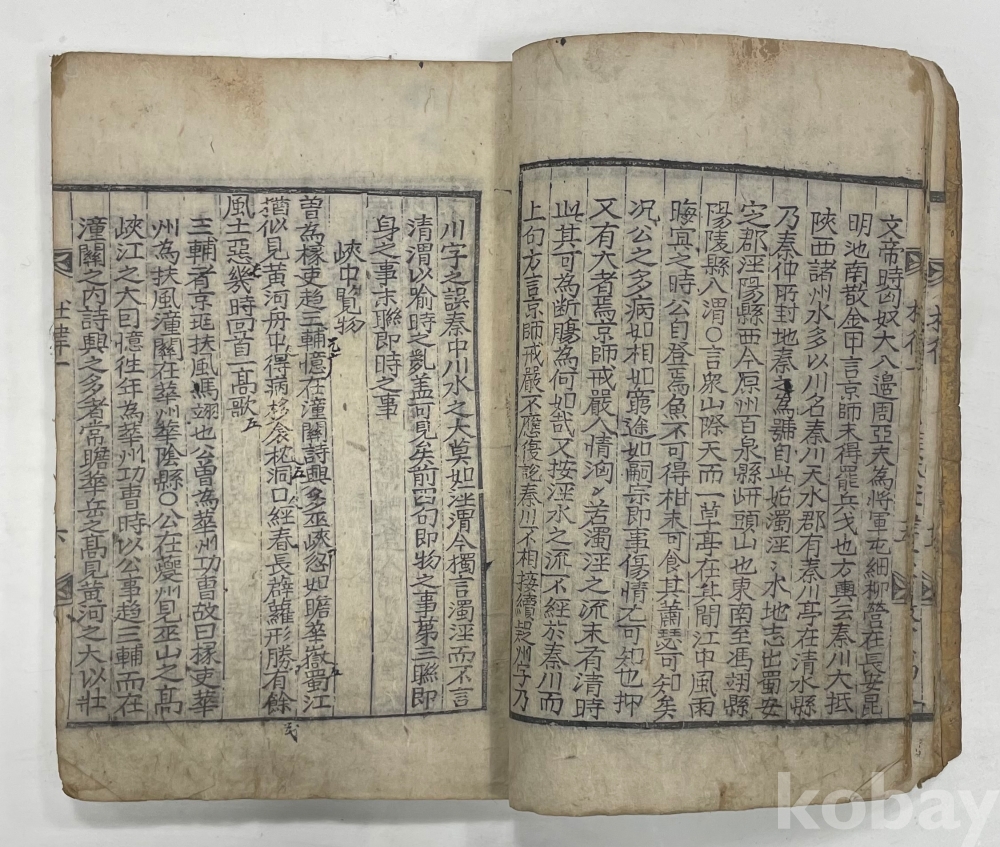 文帝時匈奴大入邊周亞夫為將軍屯細柳營在長安昆
明池南散金甲言京師未得罷兵戈也方輿云秦川大抵
陜西諸州水多以川名秦川天水郡有秦川亭在清水縣
乃秦仲所封地秦之為號自此始濁涇涇水地志出蜀安
定郡涇陽縣西今原州百泉縣岍頭山也東南至馮翊縣
陽陵縣入渭〇言衆山際天而一草亭在其間江中風雨
晦宜之時公自登焉魚不可得柑未可食其蕭瑟可知矣
况公之多病如相如窮途如嗣宗即事傷情尤可知也抑
又有大者焉京師戒嚴人情洶洶若濁涇之流未有清時
此其可為断膓為何如㢤又按涇水之流不經於秦川而
上句方言京師戒嚴不應復說秦川不相接續疑州字乃
川字之誤秦中川水之大莫如涇渭今獨言濁涇而不言
清渭以喻時之亂盖可見矣前四句即物之事第三聯即
身之事末聯即時之事
峽中覧物
曽為掾吏趍三輔憶在潼關詩興多巫峽忽如瞻華嶽蜀江
猶似見黃河舟中得病移衾枕洞口經春長薜蘿形勝有餘
風土惡幾時回首一高歌
三輔者京兆扶風馮翊也公曽為華州功曺故曰掾吏華
州為扶風潼關在華州華陰縣〇公在夔州見巫山之高
峽江之大曰憶徃年為華州功曺時以公事趍三輔而在
潼關之内詩興之多者常瞻華岳之高見黃河之大以壯
kobay